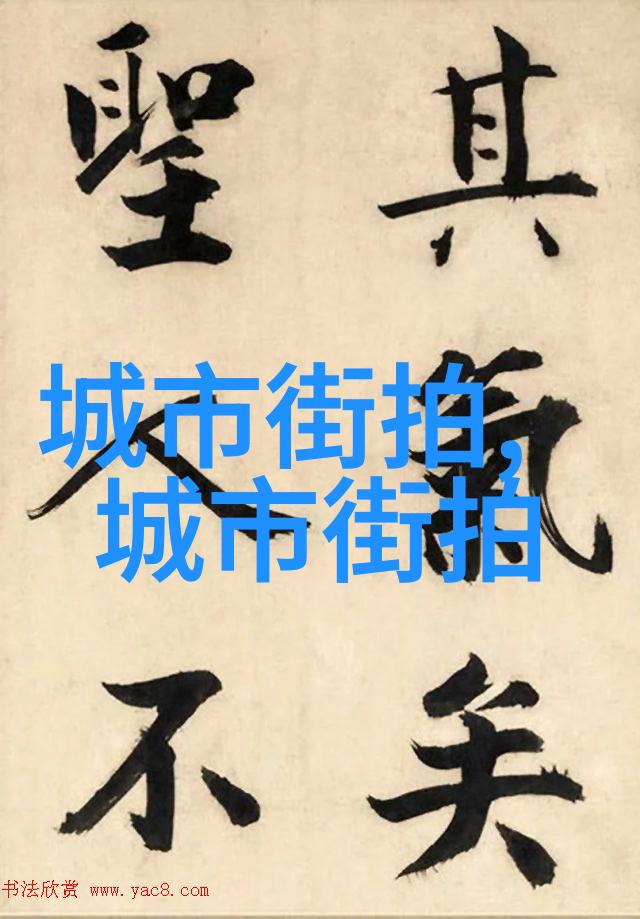 其氣矣
聖人不
城市街拍,
城市街拍
书法欣赏 www.yac8.com